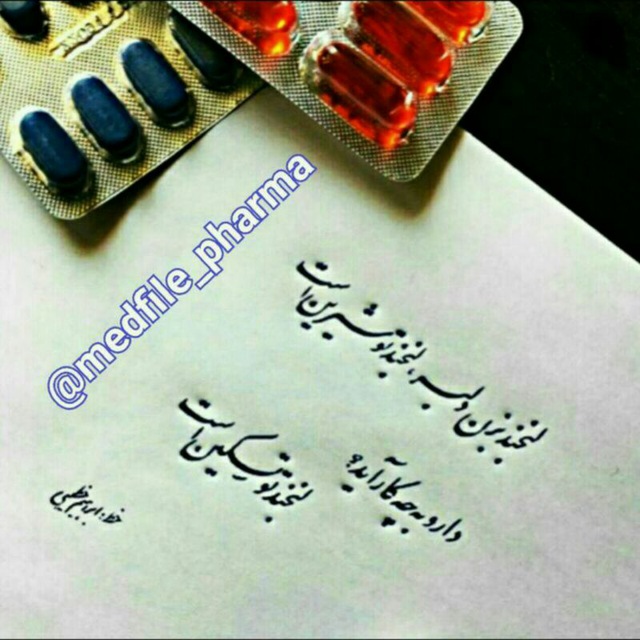 @medfile_pharma
لبخند بزن دلبر، لبخند تو شیرین است
دارو به چه کار آید؟
لبخند تو تسکین است
خط: ابراهیم